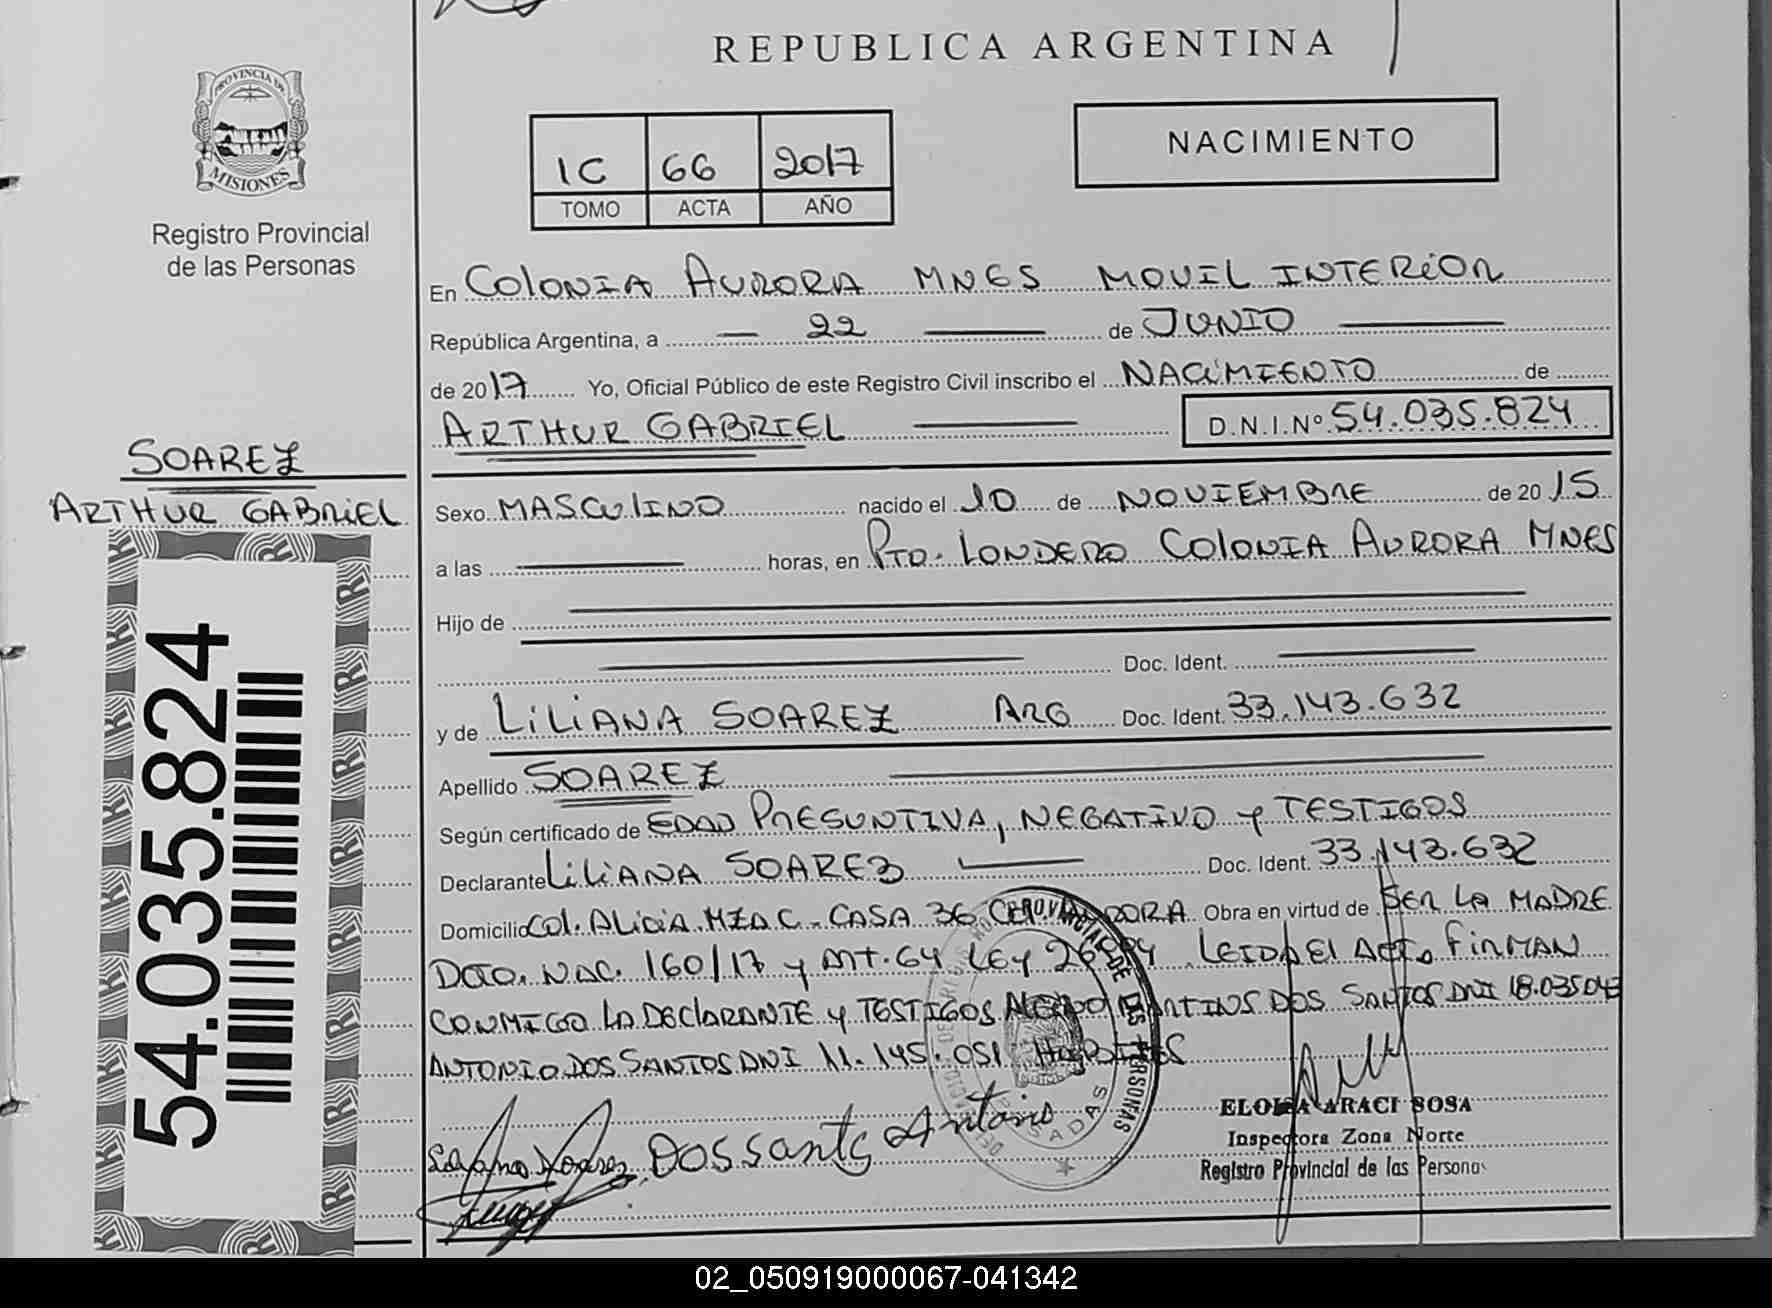 REPUBLICA ARGENTINA
PROVINCIA DE
MISIONES
Registro Provincial
de las Personas
1C 66 2017
TOMO ACTA AÑO
NACIMIENTO
En COLONIA AURORA MNES MOVIL INTERIOR
República Argentina, a 22 de JUNIO
de 2017 Yo, Oficial Público de este Registro Civil inscribo el NACIMIENTO de
ARTHUR GABRIEL D.N.I.Nº 54.035.824
SOAREZ
ARTHUR GABRIEL
54.035.824
Sexo MASCULINO nacido el 10 de NOVIEMBRE de 2015
a las horas, en PTO. LONDERO COLONIA AURORA MNES
Hijo de
Doc. Ident.
y de LILIANA SOAREZ ARG Doc. Ident. 33.143.632
Apellido SOAREZ
Según certificado de EDAD PRESUNTIVA, NEGATIVO y TESTIGOS
Declarante LILIANA SOAREZ Doc. Ident. 33.143.632
Domicilio COL. ALICIA MZA C - CASA 36 Obra en virtud de SER LA MADRE
DCTO. NAC. 160/17 y ART. 64 LEY LEIDA El ACTA FIRMAN
CONMIGO LA DECLARANTE y TESTIGOS DOS SANTOS DNI 18.035.043
ANTONIO DOS SANTOS DNI 11.145.051
Dos santos Antonio
ELOISA ARACI SOSA
Inspectora Zona Norte
Registro Provincial de las Personas
02_050919000067-041342